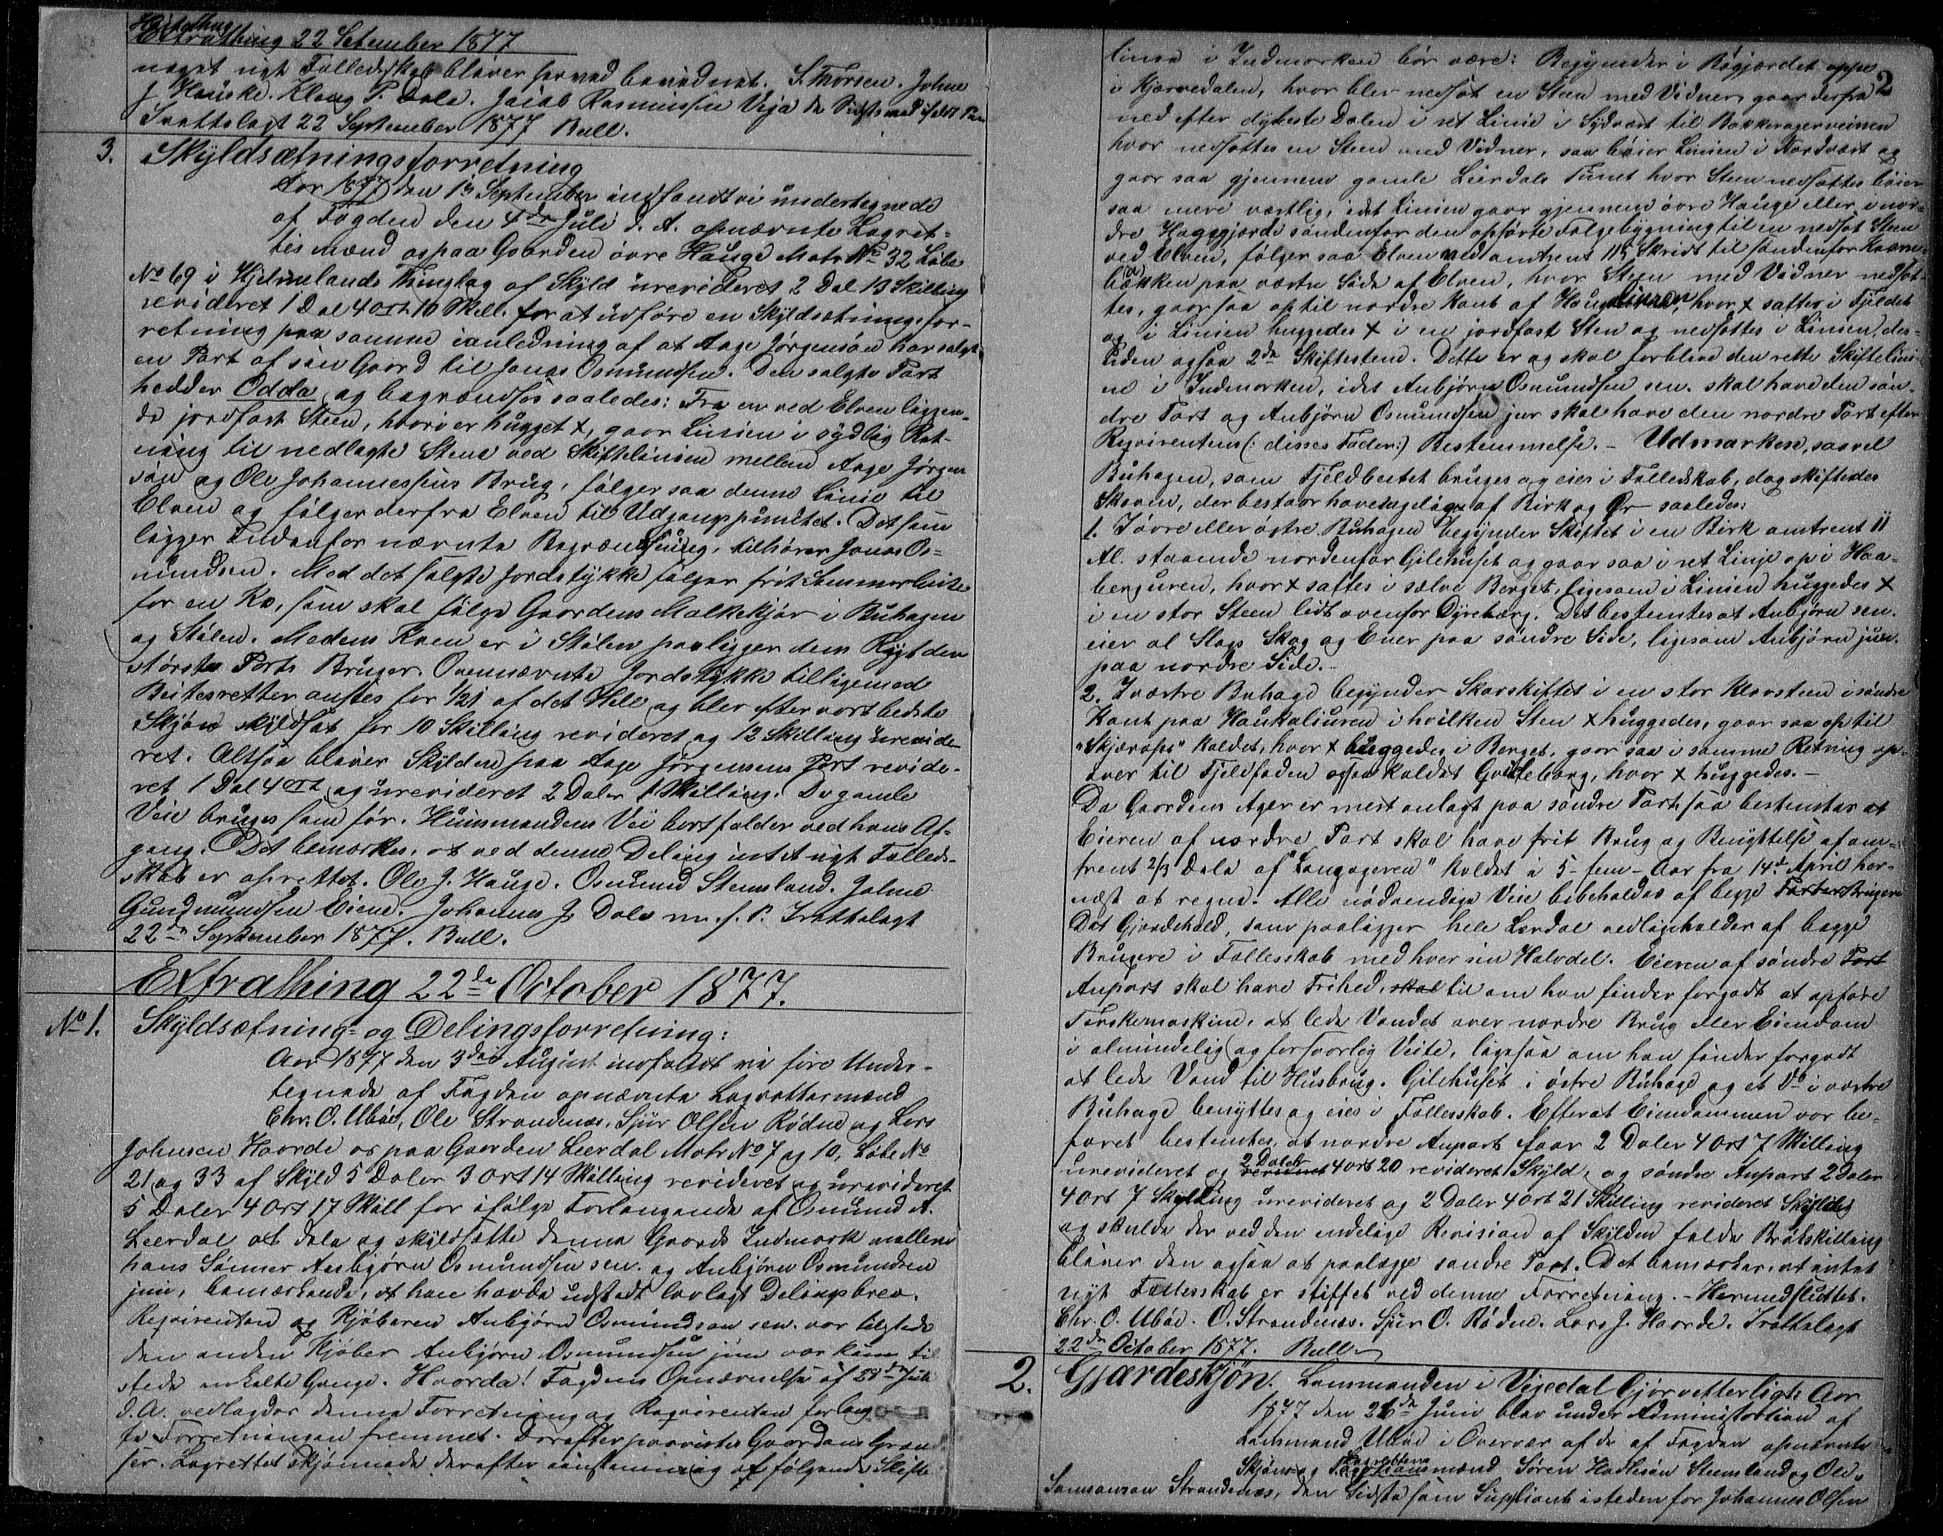 Høstething
Extrathing 22 September 1877
noget nyt Fælledsskab bliver herved bevidnet. S. Thorsen. Johne
J. Hauske. Klaug P. Dale. Jacob Rasmussen Veja
Inrettelagt 22 September 1877 Bull.
3. Skyldsætningsforretning
Aar 1877 den 13 September indfandt vi undertegnede
af Fogden den 4de Juli d. A. opnævnte Lagret-
tesmænd os paa Gaarden övre Hauge Matr No 32 Løbe
No 69 i Hjelmelands Thinglag af Skyld urevideret 2 Dal 13 Skilling
revideret 1 Dal 4 ort 10 Skill. for at udføre en Skyldsætningsfor-
retning paa samme i anledning af at Aage Jørgensön har solgt
en Part af sin Gaard til Jonas Osmundsen. Den solgte Part
hedder Odda og begrændses saaledes: Fra en ved Elven liggen-
de jordfast Steen, hvori er hugget x, gaar Linien i sydlig Ret-
ning til nedlagte Stene ved Skiftelinien mellem Aage Jørgen
sön og Ole Johannessens Brug, følger saa denne Linie til
Elven og følger derfra Elven til Udgangspunktet. Det som
ligger indenfor nævnte Begrændsning, tilhører Jonas Os-
mundsen. Med det solgte Jordstykke følger frit Sommerbeite
for en Ko, som skal følge Gaardens Malkekjør i Buhagen
og Stölen. Medens Koen er i Stölen paaligger dens Rygt den
største Parts Bruger. Ovennævnte Jordstykke tilligemed
Beitesretten ansees for 1/21 af det Hele og blev efter vort bedste
Skjøn skyldsat for 10 Skilling revideret og 12 Skilling urevide-
ret. Altsaa bliver Skylden paa Aage Jørgensens Part revide-
ret 1 Dal 4 ort og urevideret 2 Daler 1 Skilling. De gamle
Veie bruges som før. Huusmandens Vei bortfalder ved hans Af-
gang. Det bemærkes, at ved denne Deling intet nyt Fælleds-
skab er oprettet. Ole J. Hauge. Osmund Stemsland. Johne
Gundmundsen Eiene. Johannes J. Dale m. f. P. Inrettelagt
22de September 1877. Bull.
Extrathing 22de October 1877.
No 1. Skyldsætning- og Delingsforretning:
Aar 1877 den 3die August indfandt vi fire Under-
tegnede af Fogden opnævnte Lagrettesmænd
Chr. O. Ubøe, Ole Strandenæs, Sjur Olsen Rødne og Lars
Johnsen Haarde os paa Gaarden Leerdal Matr No 7 og 10, Løbe No
21 og 33 af Skyld 5 Daler 3 Ort 14 Skilling revideret og urevideret
5 Daler 4 Ort 17 Skill for ifølge Forlangende af Osmund A.
Leerdal at dele og skyldsætte denne Gaards Indmark mellem
hans Sønner Anbjørn Osmundsen sen. og Anbjørn Osmundsen
jun, bemærkende, at han havde udstedt lovlagt Delingsbrev.
Reqvirenten og Kjøberen Anbjørn Osmundsen sen. var tilstede
den anden Kjøber Anbjørn Osmundsen jun var kun til
stede enkelte Gange. Fogdens Opnævnelse af 27de Juli
d. A. vedlagdes denne Forretning og Reqvirenten forlang
te Forretningen fremmet. Derefter paavistes Gaardens Græn
ser. Lagrettet skjønnede derefter eenstemmig at følgende Skifte
2
linie i Indmarken bør være: Begynder i Røgjærdet oppe
i Kjærredalen, hvor blev nedsat en Steen med Vidner, gaar derfra
ned efter dybeste Dalen i ret Linie i Sydvæst til Bakkeagerveien
hvor nedsattes en Steen med Vidner, saa bøier Linien i Nordvæst og
gaar saa gjennem gamle Leerdals Tunet hvor Steen nedsattes bøier
saa mere væstlig, idet Linien gaar gjennem övre Hauge eller i nor-
dre Hagegjærde søndenfor den opførte Følgebygning til en nedsat Steen
ved Elven, følger saa Elven ned omtrent 115 Skridt til søndenfor Kvern-
bækken paa væstre Side af Elven, hvor Steen med Vidner nedsat-
tes, gaar saa op til nordre Kant af hvor x sattes i Fjeldet
og i Linien huggedes x i en jordfast Steen og nedsattes i Linien des-
uden ogsaa 2de Skiftestene. Dette er og skal forblive den rette Skiftelini-
e i Indmarken, idet Anbjørn Osmundsen sen. skal have den søn-
dre Part og Anbjørn Osmundsen jun skal have den nordre Part efter
Reqvirentens (: disses Fader :) Bestemmelse. - Udmarken, saavel
Buhagen, som Fjeldbeitet bruges og eies i Fælledskab, dog skiftedes
Skoven, der bestaar hovedsagelig af Birk og Or saaledes:
1. I övre eller östre Buhagen begynder Skiftet i en Birk omtrent 11
Al. staaende nordenfor Gilehuset og gaar saa i ret Linje op i Haa-
berguren, hvor x sattes i selve Berget, ligesom i Linien huggedes x
i en stor Steen lidt ovenfor Dyreberg. Det bestemtes at Anbjørn sen.
eier al Slags Skog og Ener paa søndre Side, ligesom Anbjørn jun.
paa nordre Side. -
2. I væstre Buhage begynder Skovskiftet i en stor Klovsteen i søndre
Kant paa Haukaliuren i hvilken Sten x huggedes, gaar saa op til
"Skjærops" kaldet, hvor x huggedes i Berget, gaar saa i samme Retning op-
over til Fjeldfoden ogsaa kaldet Gvitteberg, hvor x huggedes. -
Da Gaardens Ager er mest anlagt paa søndre Part, saa bestemtes at
Eieren af nordre Part skal have frit Brug og Benyttelse af om-
trent 2/3 Dele af "Langageren" kaldet i 5 - fem - Aar fra 14de April her-
næst at regne. Alle nødvendige Veie bibeholdes af begge Parter Brugere
Det Gjærdehold, som paaligger hele Lerdal vedligeholdes af begge
Brugere i Fællesskab med hver sin Halvdel. Eieren af søndre Part
Anpart skal have Frihed, skal til om han finder forgodt at opføre
Tørskemaskine, at lede Vandet over nordre Brug eller Eiendom
i almindelig og forsvarlig Veite, ligesaa om han finder forgodt
at lede Vand til Husbrug. Gilehuset i østre Buhage og et Do i væstre
Buhage benyttes og eies i Fællesskab. Efterat Eiendommen var be-
faret bestemtes, at nordre Anpart faar 2 Daler 4 Ort 7 Skilling
urevideret og 2 Daler 4 Ort 20 revideret Skyld, og søndre Anpart 2 Daler
4 Ort 7 Skilling urevideret og 2 Daler 4 Ort 21 Skilling revideret Skyld
og skulde der ved den endelige Revision af Skylden falde Brøkskilling
bliver den ogsaa at paalægge søndre Part. Det bemærkes, at intet
nyt Fællesskab er stiftet ved denne Forretning. - Hermed sluttet.
Chr. O. Ubøe. O. Strandenæs. Sjur O. Rødne. Lars J. Haarde. Inrettelagt
22de October 1877. Bull
2. Gjærdeskjøn. Lensmanden i Vigedal Gjør vitterligt: Aar
1877 den 26de Juni blev under Administration af
Lensmand Ubøe i Overvær af de af Fogden opnævnte
Skjøns og Lagrettesmænd Sören Hadlesön Stemsland og Ole
Samsonsen Strandenæs, den Sidste som Supleant isteden for Johannes Olsen